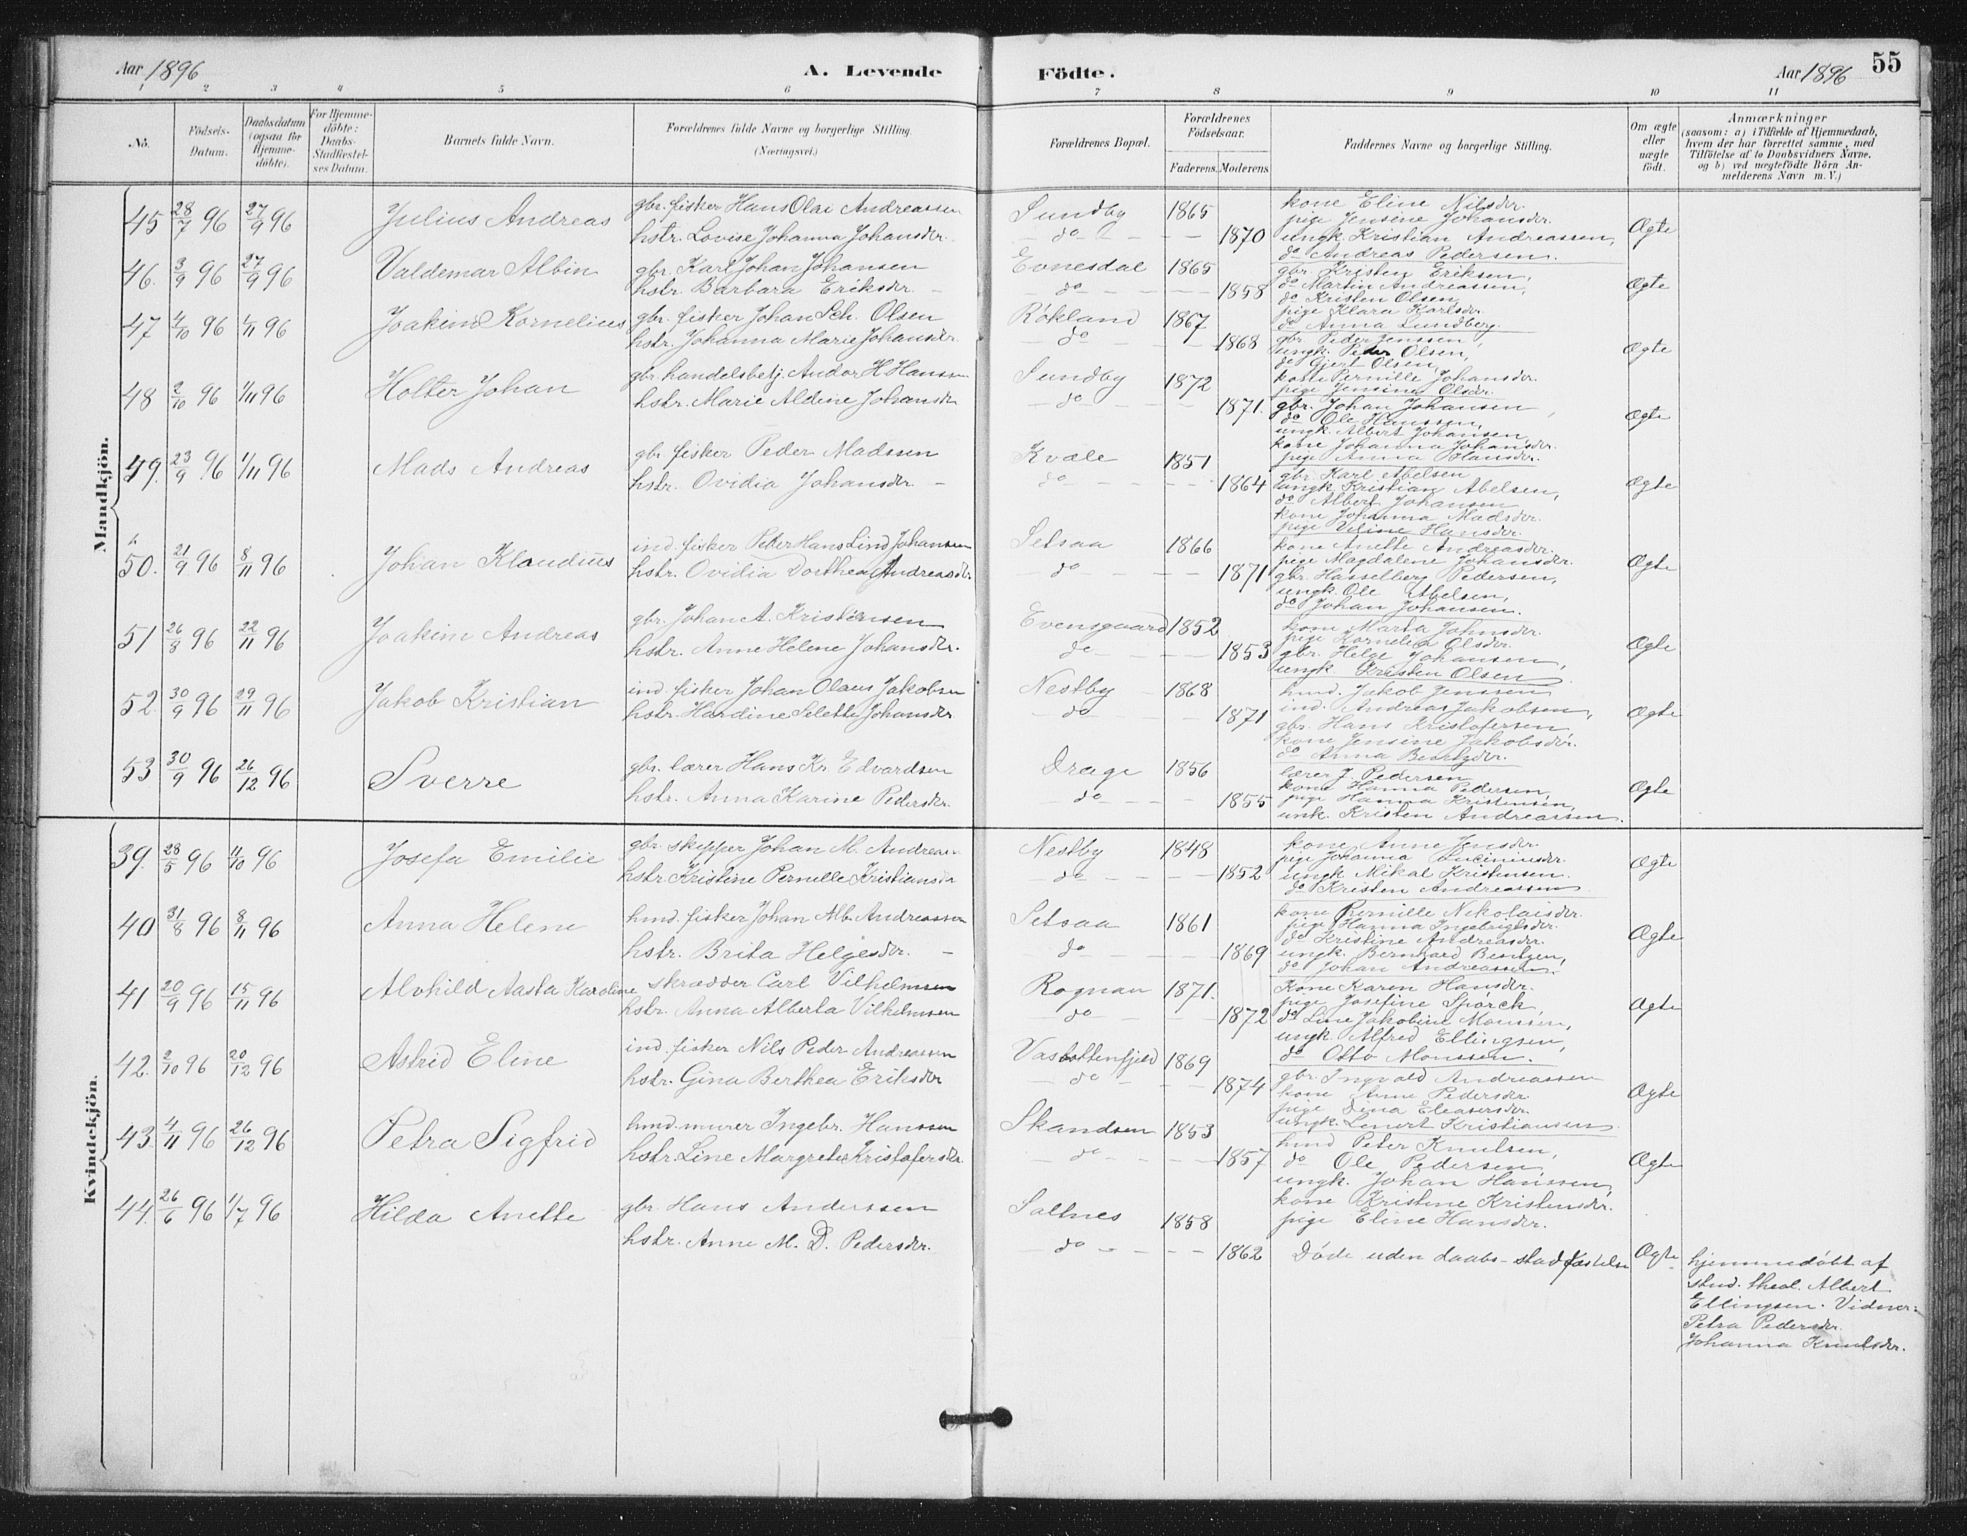 Aar 1896
A. Levende
Födte.
Aar 1896
55
1 2 3 4 5 6 7 8 9 10 11
No.
Födsels-Datum.
Daabsdatum (ogsaa for Hjemme-döbte).
For Hjemme-döbte: Daabs-Stadfæstel-ses Datum.
Barnets fulde Navn.
Forældrenes fulde Navne og borgerlige Stilling. (Næringsvei.)
Forældrenes Bopæl.
Forældrenes Födselsaar.
Faderens. Moderens.
Faddernes Navne og borgerlige Stilling.
Om ægte eller uægte födt.
Anmærkninger
(saasom: a) i Tilfælde af Hjemmedaab,
hvem der har forrettet samme, med
Tilföielse af to Daabsvidners Navne,
og b) ved uægtefödte Börn An-
melderens Navn m. V.)
Mandkjön.
45 28/7 96 27/9 96 Julius Andreas gbr. fisker Hans Olai Andreassen Sundby 1865 kone Eline Nilsdr.
pige Jensine Johansdr.
hstr. Lovise Johanna Johansdr. do 1870 ungk. Kristian Andreassen, Ægte
do Andreas Pedersen.
46. 3/9 96 27/9 96 Valdemar Albin gbr. Karl Johan Johansen Evnesdal 1865 gbr. Kristen Eriksen,
hstr. Barbara Eriksdr. do 1858 do Martin Andreassen, Ægte
do Kristen Olsen,
pige Klara Karlsdr.
do Anna Lundberg.
47 4/10 96 1/11 96 Joakim Kornelius gbr. fisker Johan Sch. Olsen Rökland 1867
hstr. Johanna Marie Johansdr. do 1868 gbr. Peder Jenssen, Ægte
ungk. Peder Olsen,
do Gjert Olsen,
kone Pernille Johansdr.
pige Jensine Olsdr.
48 2/10 96 1/11 96 Holter Johan gbr. handelsbetj. Andor H. Hanssen Sundby 1872
hstr. Marie Aldine Johansdr. do 1871. gbr. Johan Johansen, Ægte
do Ole Hanssen,
ungk. Albert Johansen
kone Johanna Johansdr.
pige Anna Hansdr.
49. 23/9 96 1/11 96 Mads Andreas gbr. fisker Peder Madssen Kvæle 1851
hstr. Ovidia Johansdr. do 1864 gbr. Karl Abelsen Ægte
ungk. Kristian Abelsen,
do Albert Johansen
kone Johanna Madsdr.
pige Hansdr.
50. 21/9 96 8/11 96 Johan Klaudius ind. fisker Peter Hans Lind Johansen Setsaa 1866 kone Anette Andreasdr.
pige Magdalene Johansdr.
hstr. Ovidia Dorthea Andreasdr. do 1871 gbr. Hasselberg Pedersen, Ægte
ungk. Ole Abelsen,
do Johan Johansen.
51 26/8 96 22/11 96 Joakim Andreas gbr. Johan A. Kristensen Evensgaard 1852 kone Marta Johnsdr.
pige Kornelia Olsdr.
hstr. Anne Helene Johansdr. do 1853 gbr. Helge Johansen, Ægte
ungk. Kristen Olsen
52. 30/9 96 29/11 96 Jakob Kristian ind. fisker Johan Olaus Jakobsen Nestby 1868 hmd. Jakob Jenssen
hstr. Hardine Selette Johansdr. do 1871 ind. Andreas Jakobsen, Ægte
gbr. Hans Kristofersen
kone Jensine Jakobsdr.
do Anna
53 30/9 96 26/12 96 Sverre gbr. lærer Hans Kr. Edvardsen Drage 1856 lærer J. Pedersen
kone Hanna Pedersen,
hstr. Anna Karine Pedersdr. do 1855 pige Hanna Kristensen, Ægte
unk. Kristen Andreassen.
Kvindekjön.
39. 28/5 96 11/10 96 Josefa Emilie gbr. skipper Johan M. Andreas- Nestby 1848 kone Anne Jensdr.
pige Johanna
hstr. Kristine Pernille Kristiansdr do 1852 ungk. Mikal Kristensen. Ægte
do Kristen Andreassen
40 31/8 96 8/11 96 Anna Helene hmd. fisker Johan Alb. Andreassen Setsaa 1861 kone Pernille Nikolaisdr.
pige Hanna Ingebrigtsdr.
do Kristine Andreasdr.
hstr. Brita Helgesdr. do 1869 ungk. Bernhard Bentzen, Ægte
do Johan Andreassen.
41 20/9 96 15/11 96 Alvhild Aasta Karoline skrædder Carl Vilhelmsen Rognan 1871. Kone Karen Hansdr.
pige Josefine Spörck,
hstr. Anna Alberta Vilhelmsen do 1872 do Line Jakobine Monssen, Ægte
ungk. Alfred Ellingsen,
do Otto Monssen.
42. 2/10 96 20/12 96 Astrid Eline ind. fisker Nils Peder Andreassen Vasbottenfjeld 1869
hstr. Gina Berthea Eriksdr do 1874 gbr. Ingvald Andreassen Ægte
kone Anne Pedersdr
pige Dina Eleasersdr.
ungk. Lenert Kristiansen
43. 4/11 96 26/12 96 Petra Sigfrid hmd. murer Ingebr. Hanssen Skandsen 1853
hmd Peter Knutsen,
hstr. Line Margrete Kristofersdr. do 1857 do Ole Pedersen, Ægte
ungk. Johan Hanssen,
kone Kristine Kristensdr.
pige Eline Hansdr.
44. 26/6 96 1/7 96 Hilda Anette gbr. Hans Anderssen Saltnes 1858
hstr. Anne M. D. Pedersdr. do 1862 Döde uden daabs-stadfæstelse Ægte
hjemmedöbt af
stud. theol. Albert
Ellingsen. Vidner:
Petra Pedersdr.
Johanna Knutsdr.